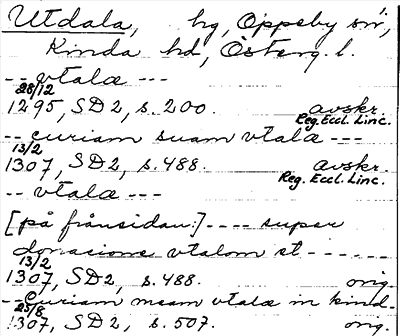 Utdala, hg, Oppeby sn,
Kinda hd, Österg. l.
-- vtalæ ---
28/12
1295, SD 2, s. 200. avskr.
Reg. Eccl. Linc.
-- curiam suam vtalæ ---
13/2
1307, SD 2, s. 488. avskr.
Reg. Eccl. Linc.
-- vtalæ ---
[på frånsidan:] ---- super
donacione vtalom st ------
13/2
1307, SD 2, s. 488. orig.
-- Curiam meam vtalæ in kind-
25/8
1307, SD 2, s. 507. orig.